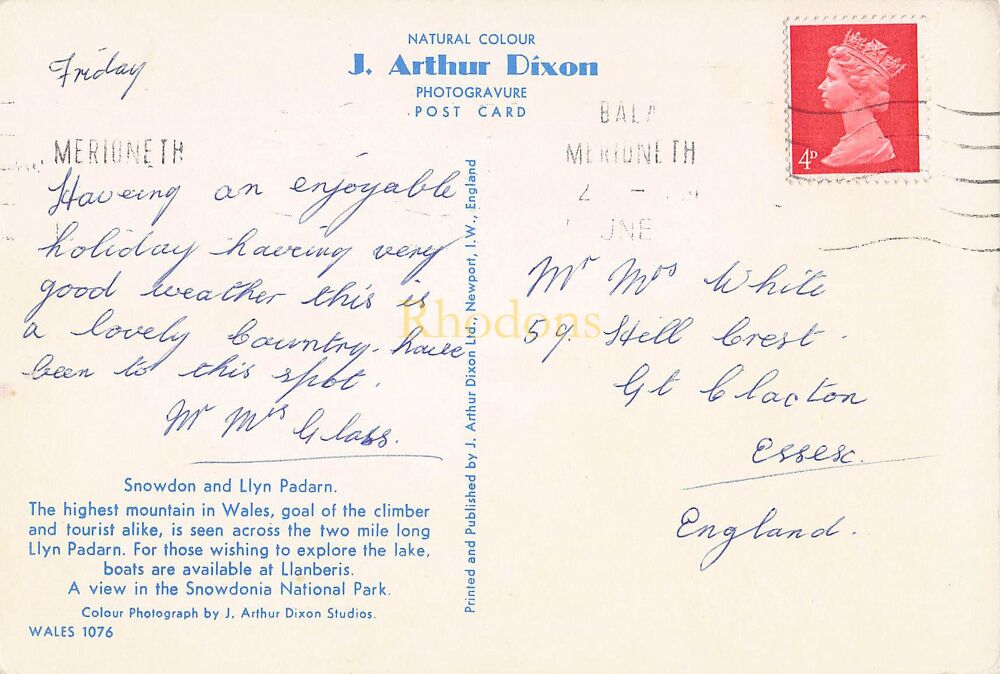 NATURAL COLOUR
J. Arthur Dixon
PHOTOGRAVURE
POST CARD
Friday
MERIONETH
Haveing an enjoyable
holiday haveing very
good weather this is
a lovely Country. have
been to this spot.
Mr Mrs Glass.
Snowdon and Llyn Padarn.
The highest mountain in Wales, goal of the climber
and tourist alike, is seen across the two mile long
Llyn Padarn. For those wishing to explore the lake,
boats are available at Llanberis.
A view in the Snowdonia National Park.
Colour Photograph by J. Arthur Dixon Studios.
WALES 1076
Printed and Published by J. Arthur Dixon Ltd., Newport, I.W., England
BALA
MERIONETH
4D
Mr Mrs White
59. Hill Crest.
Gt Clacton
Essex.
England.
Rhodons